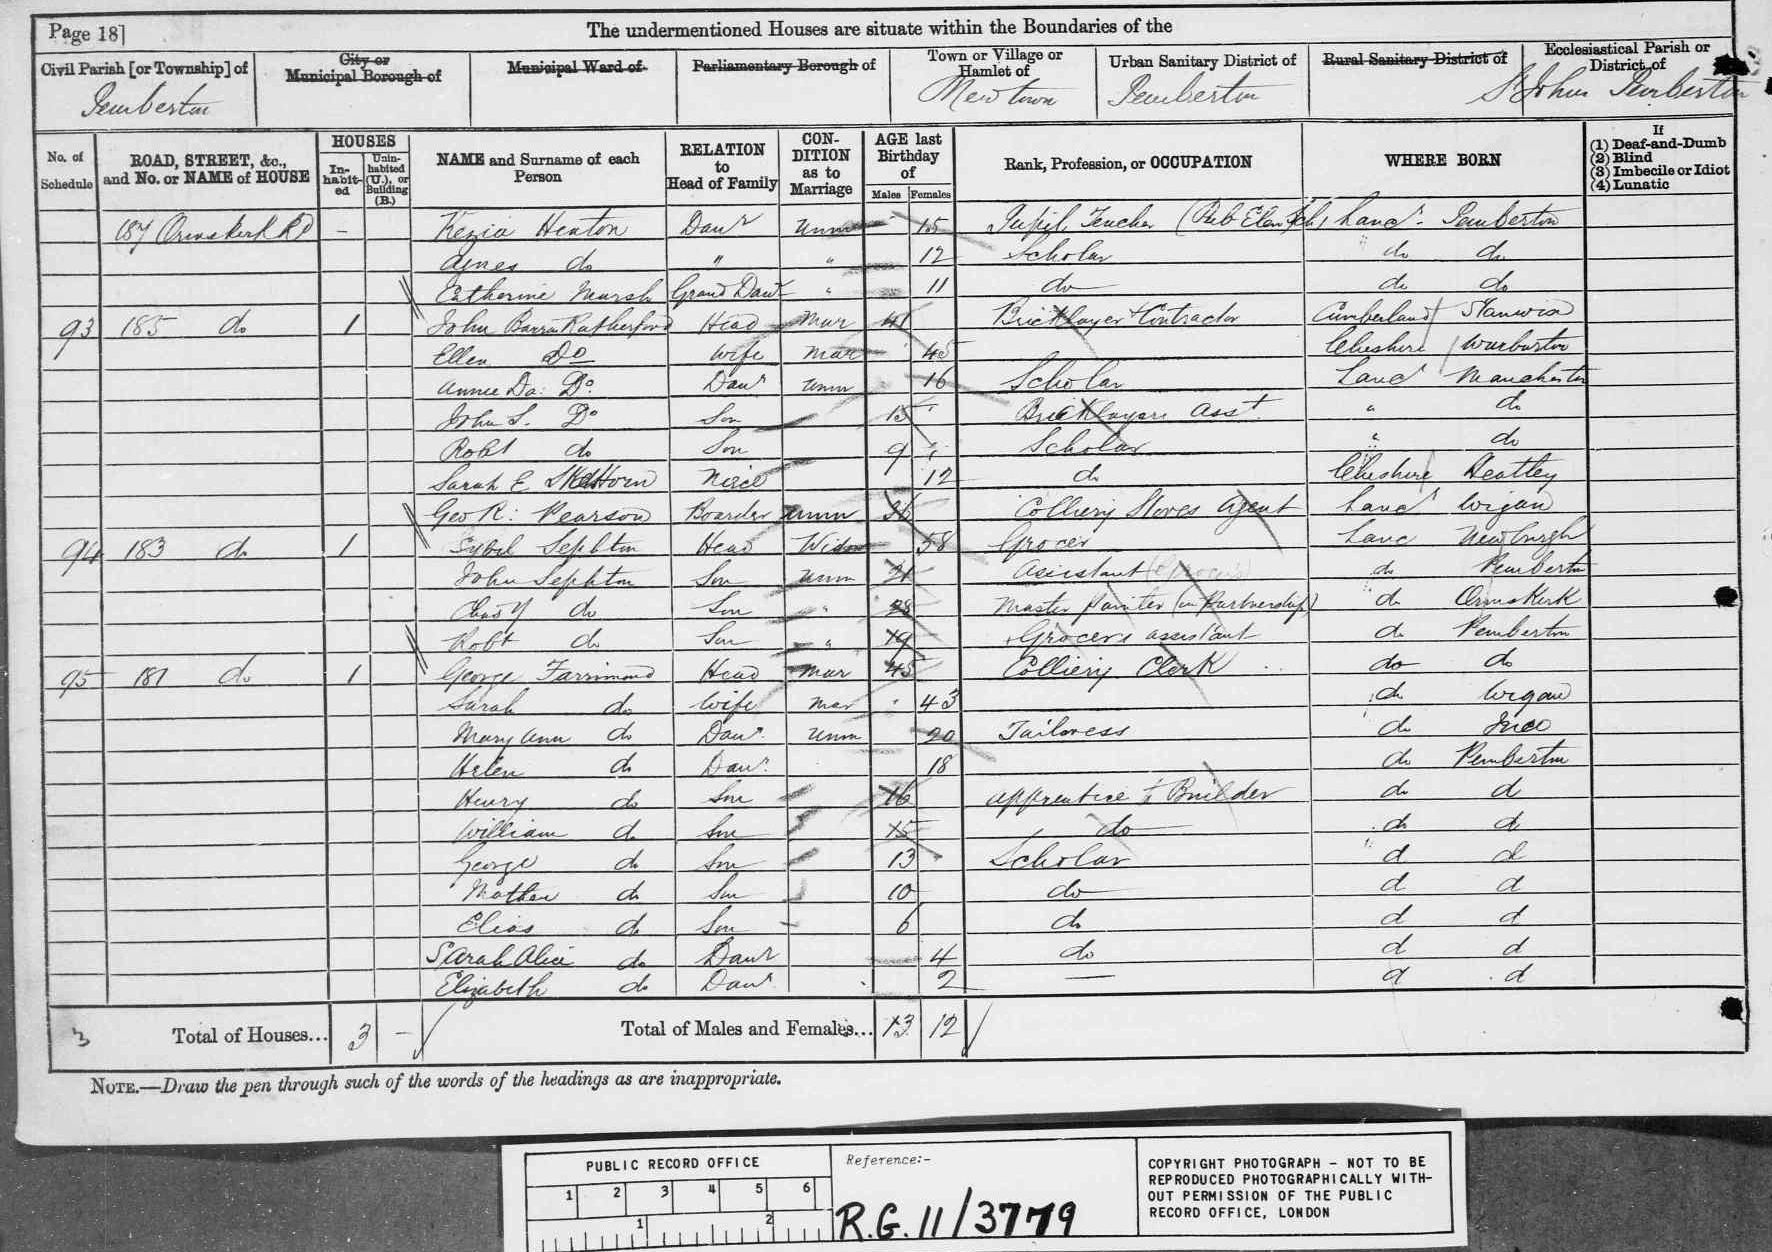 Page 18]
The undermentioned Houses are situate within the Boundaries of the
Civil Parish [or Township] of
City or Municipal Borough of
Municipal Ward of
Parliamentary Borough of
Town or Village or Hamlet of
Urban Sanitary District of
Rural Sanitary District of
Ecclesiastical Parish or District of
Pemberton
Newtown
Pemberton
St Johns Pemberton
No. of Schedule
ROAD, STREET, &c., and No. or NAME of HOUSE
HOUSES
In-habit-ed
Unin-habited (U.), or Building (B.)
NAME and Surname of each Person
RELATION to Head of Family
CON-DITION as to Marriage
AGE last Birthday of
Males
Females
Rank, Profession, or OCCUPATION
WHERE BORN
If
(1) Deaf-and-Dumb
(2) Blind
(3) Imbecile or Idiot
(4) Lunatic
187 Ormskirk Rd – Kezia Heaton Daur Unm 15 Pupil Teacher (Pub Elem Sch) Lanc. Pemberton
Agnes do " " 12 Scholar " do do
Catherine Marsh Grand Daur " 11 do do do
93 185 do 1 John Barra Rutherford Head Mar 41 Bricklayer & Contractor Cumberland Stanwix
Ellen Do Wife Mar 45 Cheshire Warburton
Annie Do Daur Unm 16 Scholar Lanc Manchester
John S. Do Son 15 Bricklayers Asst " do
Robt do Son 9 Scholar " do
Sarah E Niece 12 do Cheshire Heatley
Geo R: Pearson Boarder Unm Colliery Stores Agent Lanc Wigan
94 183 do 1 Sybil Sephton Head Widow 58 Grocer Lanc Newburgh
John Sephton Son Unm 21 Assistant (Grocers) do Pemberton
do Son " 28 Master Painter (in Partnership) do Ormskirk
Robt do Son " 19 Grocers assistant do Pemberton
95 181 do 1 George Farrimond Head Mar 45 Colliery Clerk do do
Sarah do Wife Mar 43 do Wigan
Mary Ann do Daur Unm 20 Tailoress do Ince
Helen do Daur 18 do Pemberton
Henry do Son 16 apprentice to Builder do d
William do Son 15 do do d
George do Son 13 Scholar d d
Mather do Son 10 do d d
Elias do Son 6 do d d
Sarah Alice do Daur 4 do d d
Elizabeth do Daur 2 — d d
3 Total of Houses... 3 – Total of Males and Females... 13 12
NOTE.—Draw the pen through such of the words of the headings as are inappropriate.
PUBLIC RECORD OFFICE
1 2 3 4 5 6
1 2
Reference:-
R.G. 11/3779
COPYRIGHT PHOTOGRAPH – NOT TO BE
REPRODUCED PHOTOGRAPHICALLY WITH-
OUT PERMISSION OF THE PUBLIC
RECORD OFFICE, LONDON